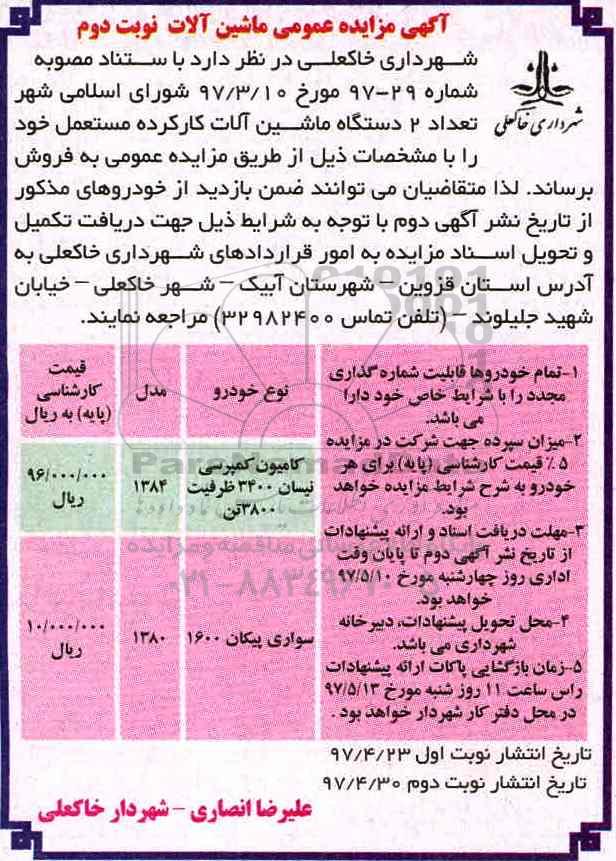 آگهی مزایده عمومی ماشین آلات نوبت دوم
شهرداری خاکعلی
شهرداری خاکعلی در نظر دارد با ستناد مصوبه
شماره ۲۹-۹۷ مورخ ۹۷/۳/۱۰ شورای اسلامی شهر
تعداد ۲ دستگاه ماشین آلات کارکرده مستعمل خود
را با مشخصات ذیل از طریق مزایده عمومی به فروش
برساند. لذا متقاضیان می توانند ضمن بازدید از خودروهای مذکور
از تاریخ نشر آگهی دوم با توجه به شرایط ذیل جهت دریافت تکمیل
و تحویل اسناد مزایده به امور قراردادهای شهرداری خاکعلی به
آدرس استان قزوین – شهرستان آبیک – شهر خاکعلی – خیابان
شهید جلیلوند – (تلفن تماس ۳۲۹۸۲۴۰۰) مراجعه نمایند.
۱-تمام خودروها قابلیت شماره گذاری
مجدد را با شرایط خاص خود دارا
می باشد.
۲-میزان سپرده جهت شرکت در مزایده
۵٪ قیمت کارشناسی (پایه) برای هر
خودرو به شرح شرایط مزایده خواهد
بود.
۳-مهلت دریافت اسناد و ارائه پیشنهادات
از تاریخ نشر آگهی دوم تا پایان وقت
اداری روز چهارشنبه مورخ ۹۷/۵/۱۰
خواهد بود.
۴-محل تحویل پیشنهادات، دبیرخانه
شهرداری می باشد.
۵-زمان بازگشایی پاکات ارائه پیشنهادات
راس ساعت ۱۱ روز شنبه مورخ ۹۷/۵/۱۳
در محل دفتر کار شهردار خواهد بود .
نوع خودرو
مدل
قیمت
کارشناسی
(پایه) به ریال
کامیون کمپرسی
نیسان ۳۴۰۰ ظرفیت
۳۸۰۰تن
۱۳۸۴
۹۶/۰۰۰/۰۰۰
ریال
سواری پیکان ۱۶۰۰
۱۳۸۰
۱۰/۰۰۰/۰۰۰
ریال
تاریخ انتشار نوبت اول ۹۷/۴/۲۳
تاریخ انتشار نوبت دوم ۹۷/۴/۳۰
علیرضا انصاری – شهردار خاکعلی